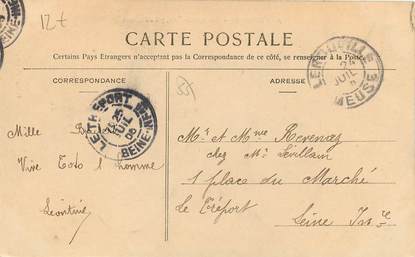 12t
CARTE POSTALE
Certains Pays Etrangers n'acceptant pas la Correspondance de ce côté, se renseigner à la Poste
CORRESPONDANCE
ADRESSE
LEROUVILLE
24
JUIL
MEUSE
LE TREPORT
25
JUIL
06
SEINE INF
Mille
Vive Toto l'homme
Léontine
Mr et Mme Revenez
chez Mr Levillain
1 place du Marché
Le Tréport
Seine Inre